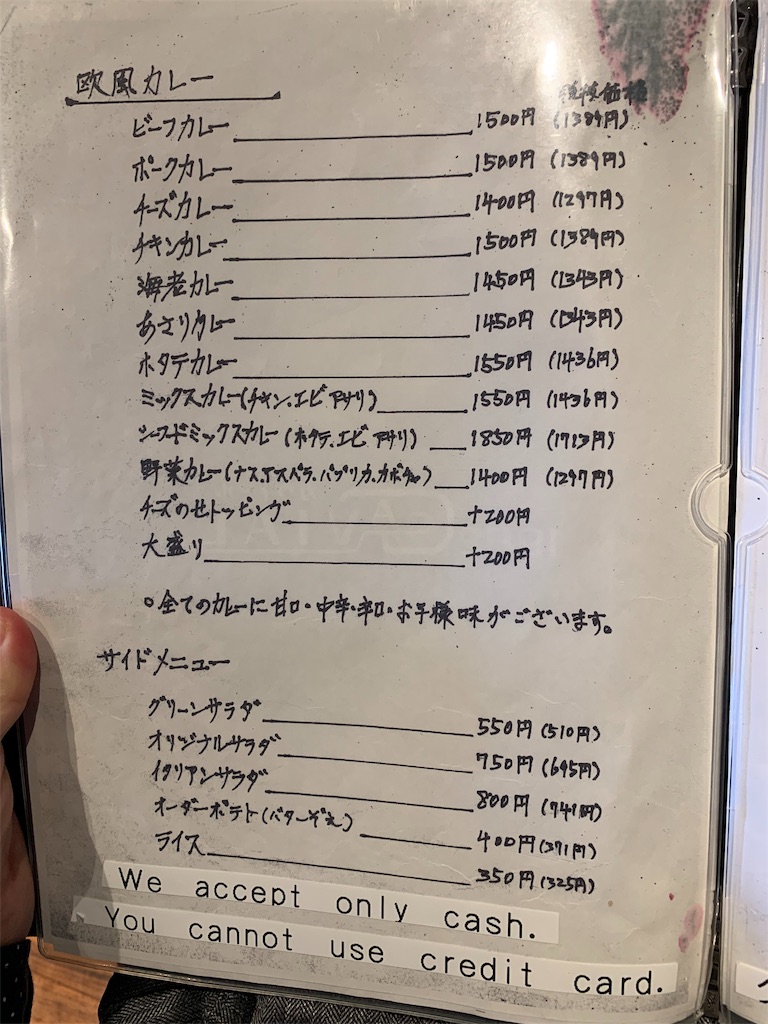 欧風カレー
税抜価格
ビーフカレー 1500円 (1389円)
ポークカレー 1500円 (1389円)
チーズカレー 1400円 (1297円)
チキンカレー 1500円 (1389円)
海老カレー 1450円 (1343円)
あさりカレー 1450円 (1343円)
ホタテカレー 1550円 (1436円)
ミックスカレー(チキン、エビ アサリ) 1550円 (1436円)
シーフードミックスカレー (ホタテ、エビ アサリ) 1850円 (1713円)
野菜カレー(ナス、アスパラ、パプリカ、カボチャ) 1400円 (1297円)
チーズのせトッピング +200円
大盛り +200円
○全てのカレーに甘口・中辛・辛口・お子様味がございます。
サイドメニュー
グリーンサラダ 550円(510円)
オリジナルサラダ 750円(695円)
イタリアンサラダ 800円(741円)
オーダーポテト(バターぞえ) 400円(371円)
ライス 350円(325円)
We accept only cash.
You cannot use credit card.